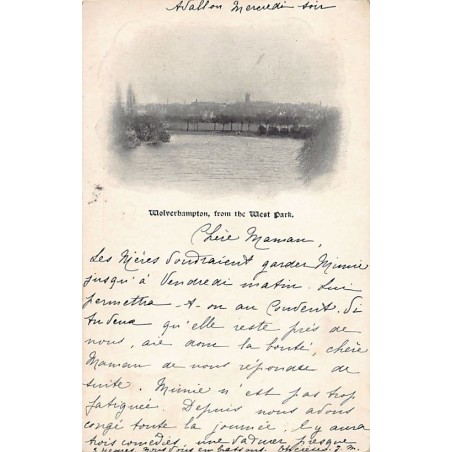 Avallon Mercredi soir
Wolverhampton, from the West Park.
Chère Maman,
Les Mères voudraient garder Mimie
jusqu'à Vendredi matin. Lui
permettra-t-on au Couvent. Si
qu'elle reste près de
nous, aie donc la bonté, chère
Maman de nous répondre de
suite. Mimie n'est pas trop
fatiguée. Depuis nous avons
congé toute la journée. Il y aura
trois comédies, une presque